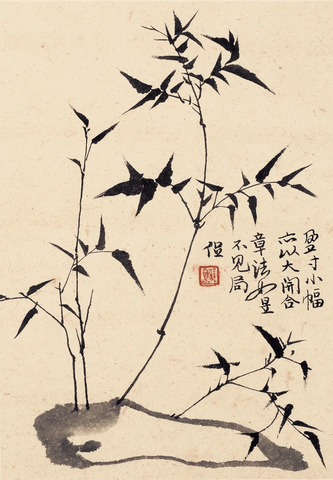 盈寸小幅
亦以大開合
章法如是
不見局
促